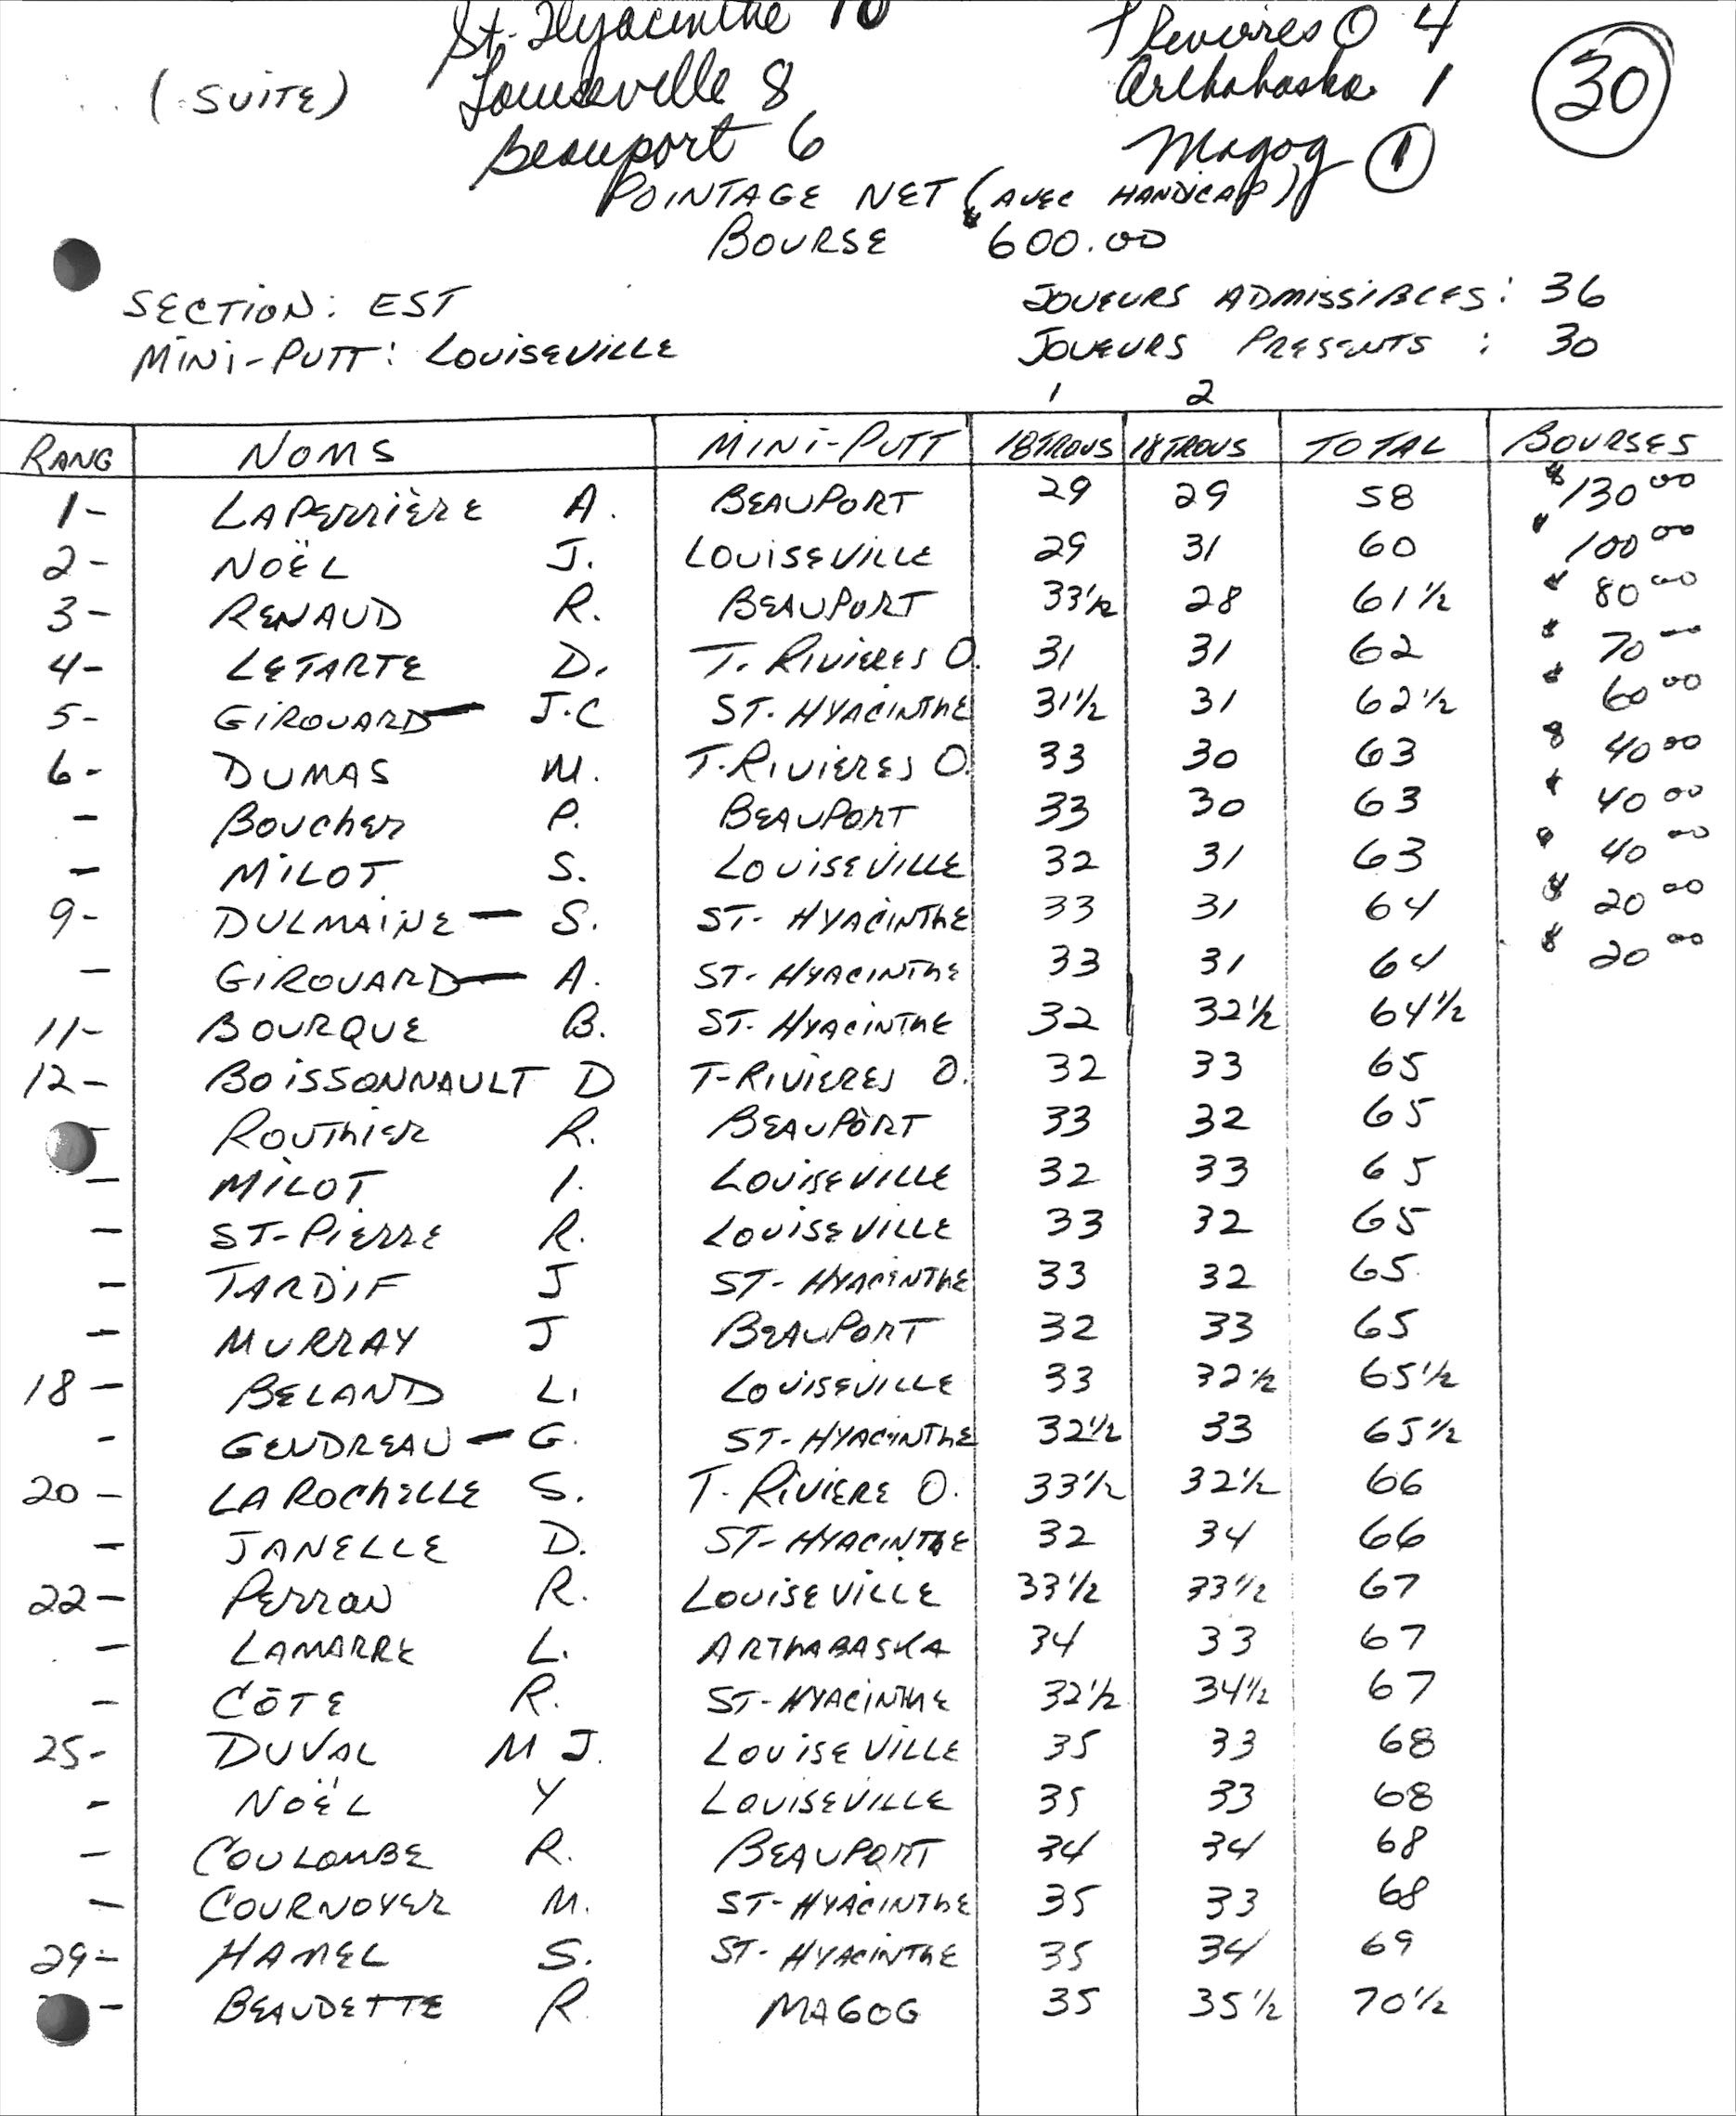 St-Hyacinthe 10 T Rivières O 4
(SUITE) Louiseville 8 Arthabaska 1 30
Beauport 6 Magog 1
POINTAGE NET (AVEC HANDICAP)
BOURSE $600.00
SECTION: EST JOUEURS ADMISSIBLES: 36
MINI-PUTT: LOUISEVILLE JOUEURS PRESENTS : 30
1 2
RANG NOMS MINI-PUTT 18 TROUS 18 TROUS TOTAL BOURSES
1- LAPERRIÈRE A. BEAUPORT 29 29 58 $130 00
2- NOËL J. LOUISEVILLE 29 31 60 $100 00
3- RENAUD R. BEAUPORT 33½ 28 61½ $80 00
4- LETARTE D. T. RIVIERES O. 31 31 62 $70 00
5- GIROUARD — J.C ST. HYACINTHE 31½ 31 62½ $60 00
6- DUMAS M. T. RIVIERES O. 33 30 63 $40 00
- BOUCHER P. BEAUPORT 33 30 63 $40 00
- MILOT S. LOUISEVILLE 32 31 63 $40 00
9- DULMAINE — S. ST- HYACINTHE 33 31 64 $20 00
- GIROUARD — A. ST- HYACINTHE 33 31 64 $20 00
11- BOURQUE B. ST- HYACINTHE 32 32½ 64½
12- BOISSONNAULT D T-RIVIERES O. 32 33 65
- ROUTHIER R. BEAUPORT 33 32 65
- MILOT I. LOUISEVILLE 32 33 65
- ST-PIERRE R. LOUISEVILLE 33 32 65
- TARDIF J ST- HYACINTHE 33 32 65
- MURRAY J BEAUPORT 32 33 65
18- BELAND L. LOUISEVILLE 33 32½ 65½
- GENDREAU — G. ST- HYACINTHE 32½ 33 65½
20- LAROCHELLE S. T- RIVIERE O. 33½ 32½ 66
- JANELLE D. ST- HYACINTHE 32 34 66
22- PERRON R. LOUISEVILLE 33½ 33½ 67
- LAMARRE L. ARTHABASKA 34 33 67
- CÔTE R. ST-HYACINTHE 32½ 34½ 67
25- DUVAL M J. LOUISEVILLE 35 33 68
- NOËL Y LOUISEVILLE 35 33 68
- COULOMBE R. BEAUPORT 34 34 68
- COURNOYER M. ST-HYACINTHE 35 33 68
29- HAMEL S. ST- HYACINTHE 35 34 69
- BEAUDETTE R MAGOG 35 35½ 70½